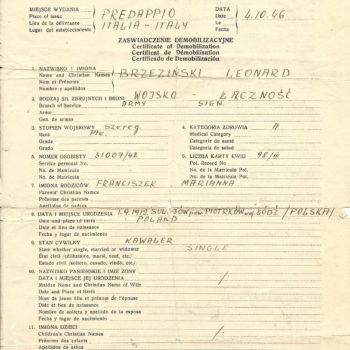 MIEJSCE WYDANIA PREDAPPIO DATA
Place of issue Date 4.10.46
Lieu de la délivrance ITALIA - ITALY Le
Lugar del establecimiento Fecha
ZAŚWIADCZENIE DEMOBILIZACYJNE
Certificate of Demobilization
Certificat de Démobilisation
Certificado de Demobilización
1. NAZWISKO I IMIONA BRZEZIŃSKI LEONARD
Name and Christian Names
Nom et Prénoms
Nombre y apellidos
2. RODZAJ SIŁ ZBROJNYCH I BRONI WOJSKO - ŁĄCZNOŚĆ
Branch of Service ARMY SIGN.
Arme
Gen. de armas
3. STOPIEŃ WOJSKOWY Szereg. 4. KATEGORIA ZDROWIA A
Rank Pte. Medical Category
Grade Categorie de santé
Grado Categorie de salud
5. NUMER OSOBISTY 31007/42 6. LICZBA KARTY EWID 98/III
Service personal No. Pol. Record No
No. de Matricule No. de Matricule Pol.
No. de Matricula No. de la Matricula Pol.
7. IMIONA RODZICÓW FRANCISZEK MARIANNA
Parents' Christian Names
Prénoms des parents
Nombres de los padres
8. DATA I MIEJSCE URODZENIA 1.9.1912 SULEJÓW PIOTRKÓW woj. ŁÓDŹ /POLSKA/
Date and place of birth POLAND
Date et lieu de naissance
Fecha y lugar de nacimiento
9. STAN CYWILNY KAWALER
State whether single, married or widower SINGLE
État civil (célibataire, marié, veuf, etc.)
Estado civil (soltero, casado, viudo, etc.)
10. NAZWISKO PANIEŃSKIE I IMIĘ ŻONY
DATA I MIEJSCE JEJ URODZENIA
Maiden Name and Christian Name of Wife
Date and Place of Birth
Nom de jeune fille et prénom de l'épouse
Date et lieu de naissance
Nombre de soltera y apellido de la esposa
Fecha y lugar de nacimiento
11. IMIONA DZIECI
Children's Christian Names
Prénoms des enfants
Apellidos de niños